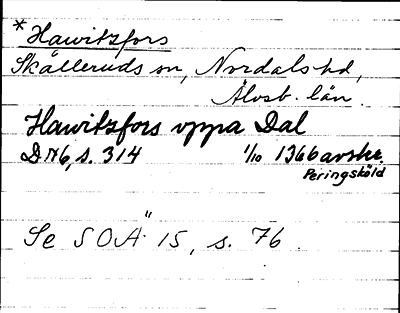 *Hawitzfors
Skålleruds sn, Nordals hd,
Älvsb. län.
Hawitzfors vppa Dal
D N6, s. 314 1/10 1366 avskr.
Peringsköld
Se SOÄ 15, s. 76.